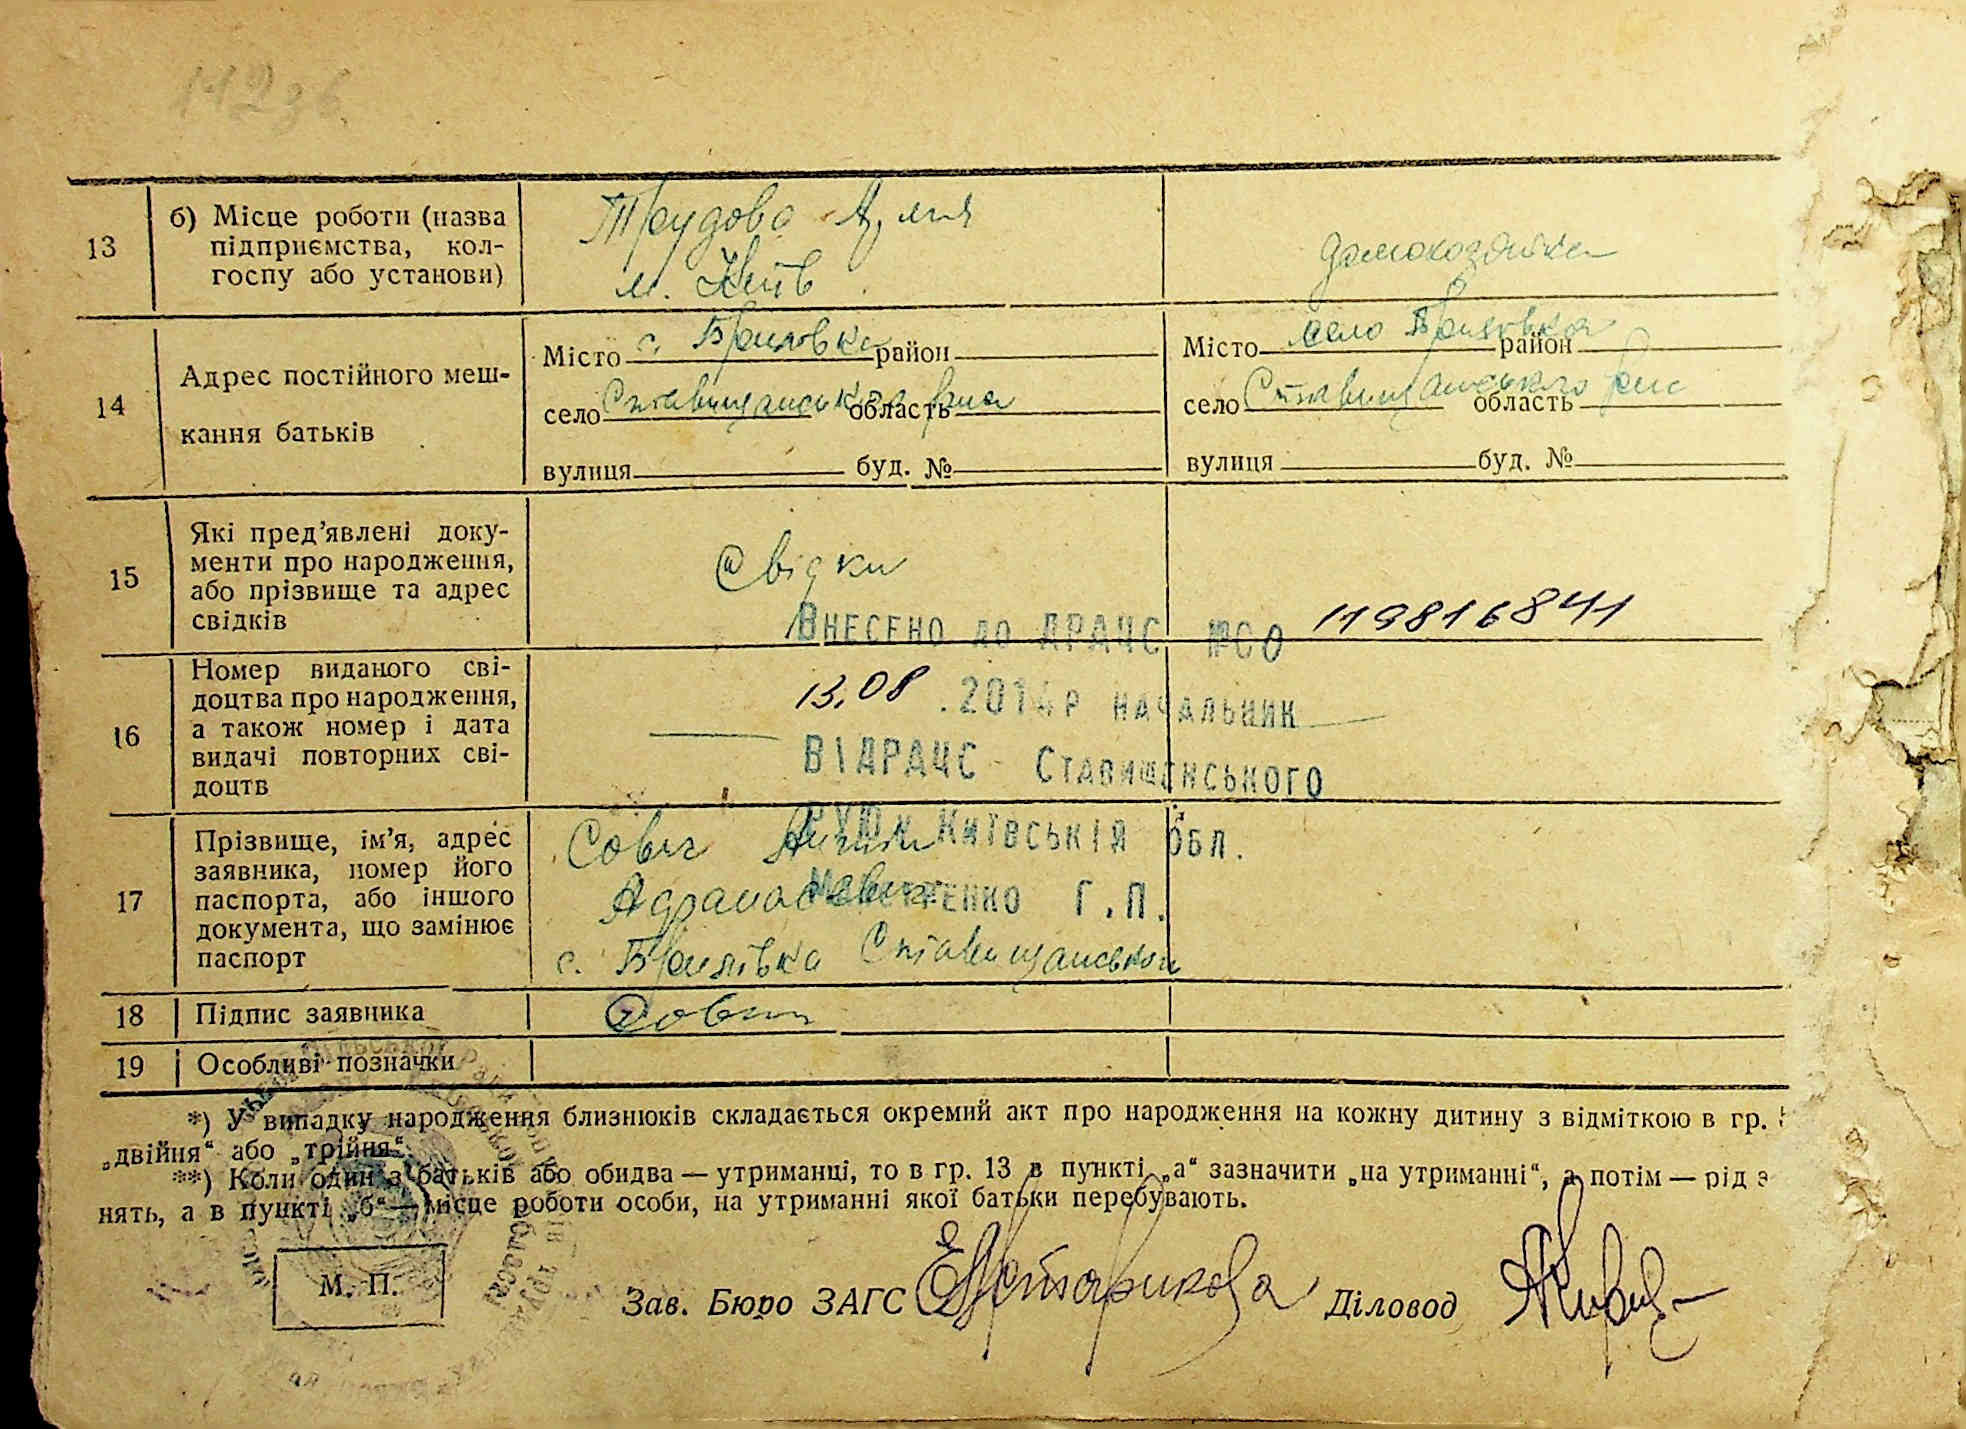 112зв
13
б) Місце роботи (назва
підприємства, кол-
госпу або установи)
Трудова Армія
м. Київ
домохозяйка
14
Адрес постійного меш-
кання батьків
Місто с. Бриловка район
село Ставищанського р-на область
вулиця буд. №
Місто село район
село Ставищанського область
вулиця буд. №
15
Які пред’явлені доку-
менти про народження,
або прізвище та адрес
свідків
Свідки
Внесено до ДРАЧС №СО 119816841
16
Номер виданого сві-
доцтва про народження,
а також номер і дата
видачі повторних сві-
доцтв
13.08 .2014р начальник
ВіДРАЧС Ставищанського
РУЮ Київській обл.
Г.П.
17
Прізвище, ім’я, адрес
заявника, номер його
паспорта, або іншого
документа, що замінює
паспорт
с. Брилівка
18
Підпис заявника
19
Особливі позначки
*) У випадку народження близнюків складається окремий акт про народження на кожну дитину з відміткою в гр.
„двійня“ або „трійня“.
**) Коли один з батьків або обидва — утриманці, то в гр. 13 в пункті „а“ зазначити „на утриманні“, а потім — рід з
нять, а в пункті „б“ — місце роботи особи, на утриманні якої батьки перебувають.
М. П.
Зав. Бюро ЗАГС
Діловод